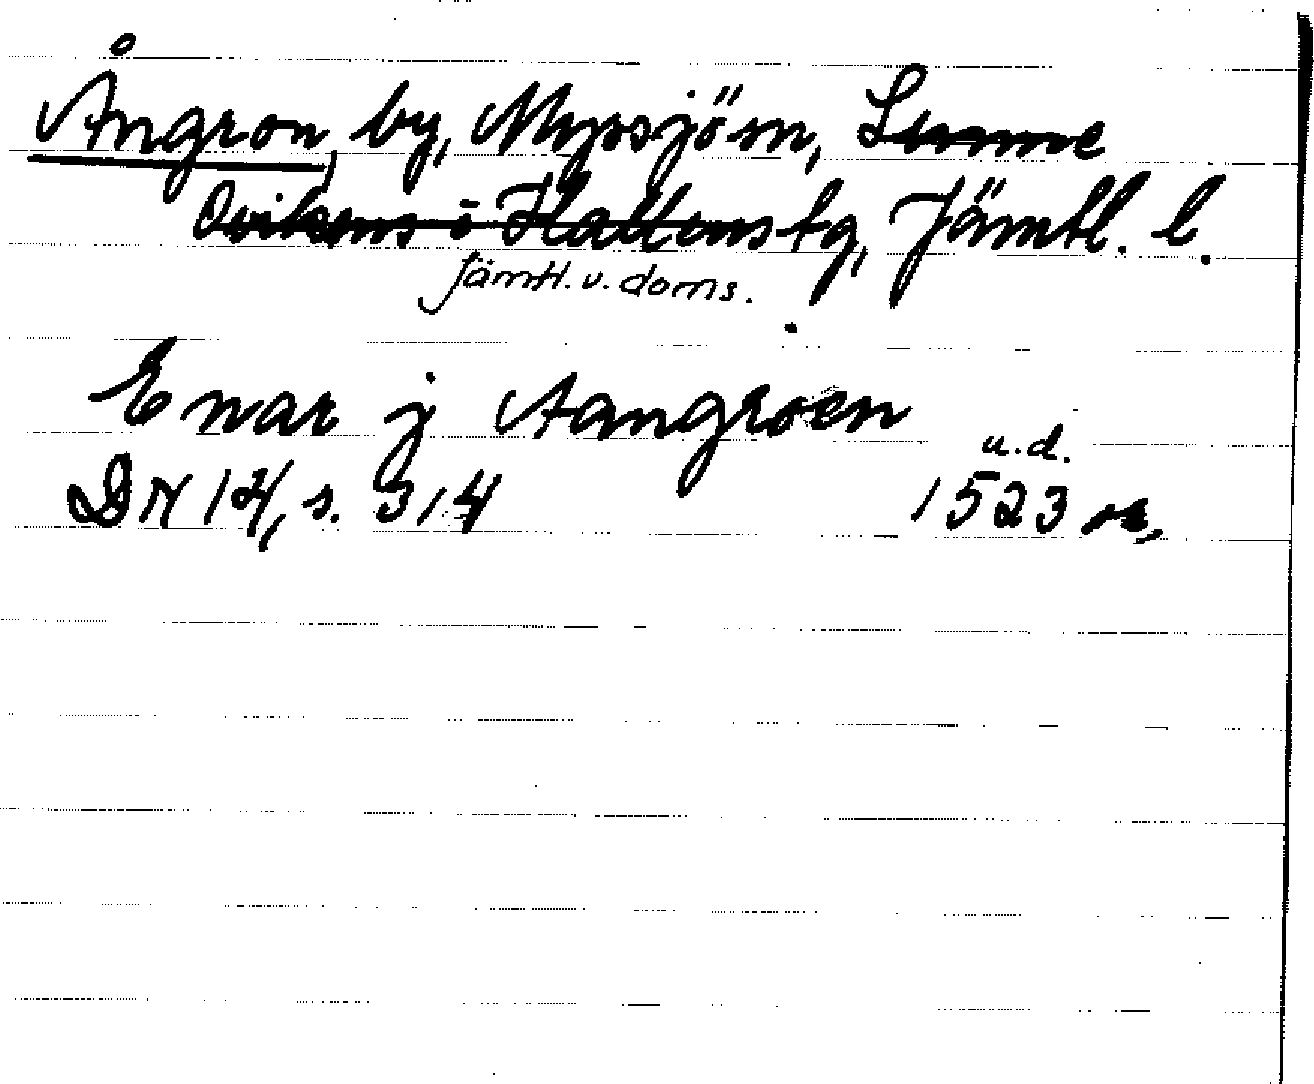 Ångron, by, Myssjö sn, Sunne
Ovikens o Hallens tg, Jämtl. l.
Jämtl. v. doms.
Enar j Aangroen
u.d.
DN 14, s. 314 1523 or.